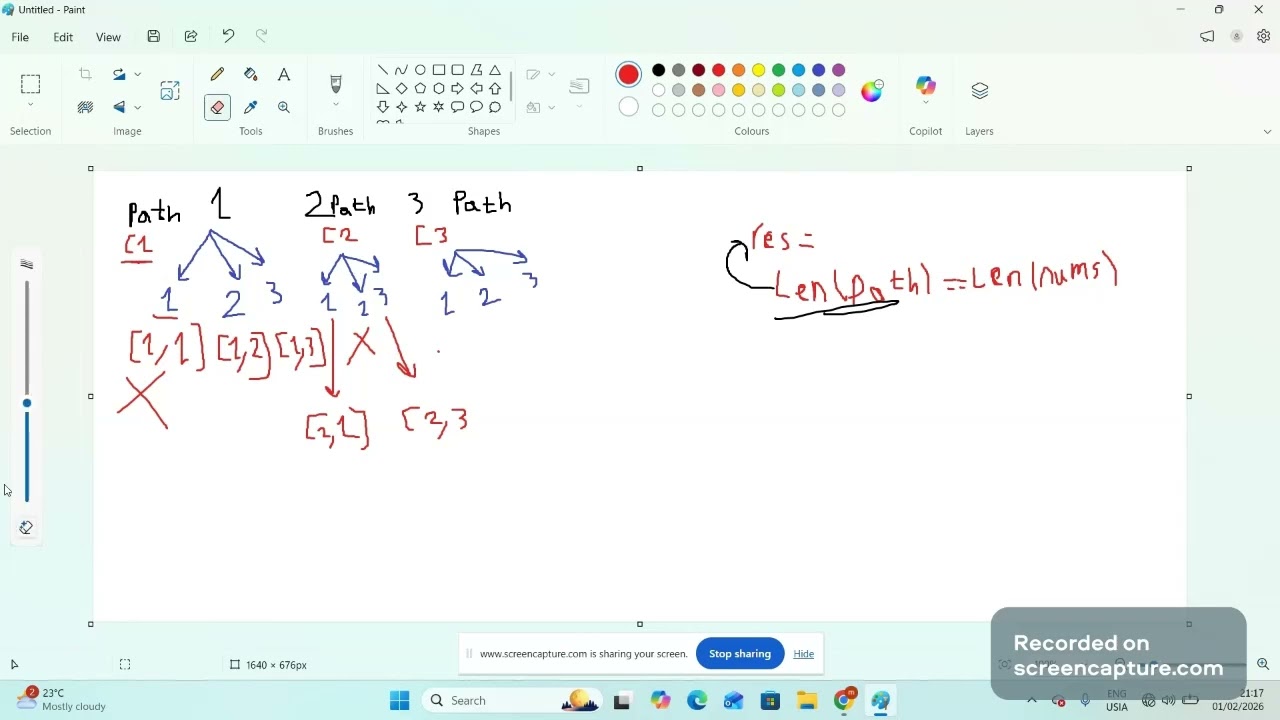 Untitled - Paint
File Edit View
Selection Image Tools Brushes Shapes Colours Copilot Layers
Path 1 2 Path 3 Path
[1 [2 [3
1 2 3 1 2 3 1 2 3
[1,1] [1,2] [1,3]
[2,1] [2,3
res =
Len(path) == Len(nums)
www.screencapture.com is sharing your screen. Stop sharing Hide
Recorded on
screencapture.com
1640 × 676px
2
23°C
Mostly cloudy
Search
ENG
USIA
21:17
01/02/2026